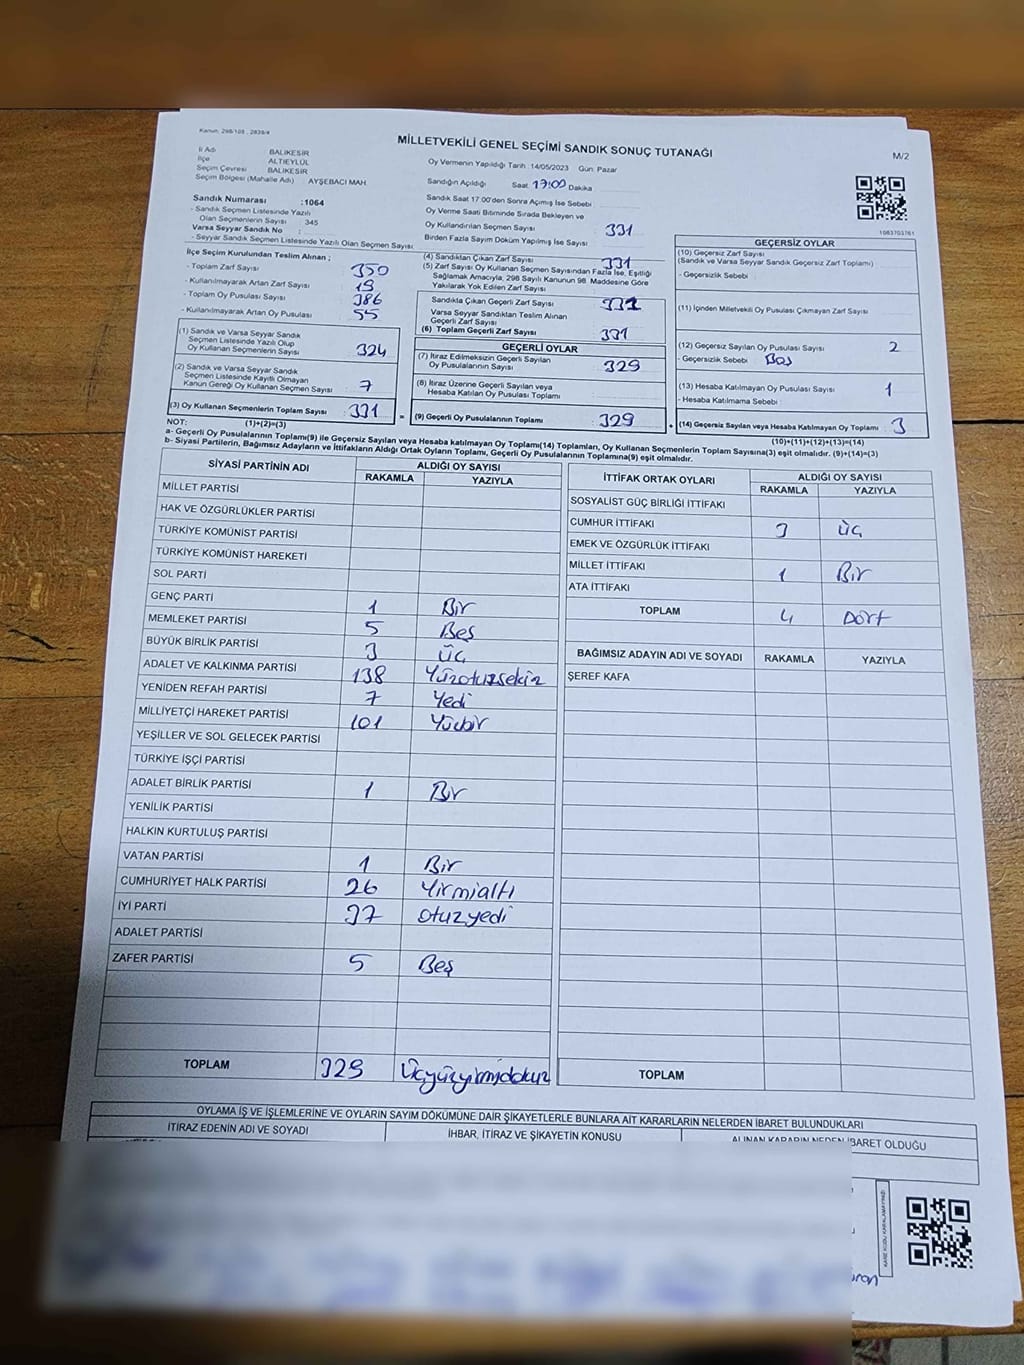 Kanun: 298/105 , 2839/4
MİLLETVEKİLİ GENEL SEÇİMİ SANDIK SONUÇ TUTANAĞI
M/2
İl Adı BALIKESİR
İlçe ALTIEYLÜL
Seçim Çevresi BALIKESİR
Seçim Bölgesi (Mahalle Adı) : AYŞEBACI MAH.
Oy Vermenin Yapıldığı Tarih : 14/05/2023 Gün: Pazar
Sandığın Açıldığı Saat 17:00 Dakika
Sandık Numarası :1064
- Sandık Seçmen Listesinde Yazılı
Olan Seçmenlerin Sayısı : 345
Varsa Seyyar Sandık No :
- Seyyar Sandık Seçmen Listesinde Yazılı Olan Seçmen Sayısı:
Sandık Saat 17:00'den Sonra Açılmış İse Sebebi :
Oy Verme Saati Bitiminde Sırada Bekleyen ve
Oy Kullandırılan Seçmen Sayısı : 331
Birden Fazla Sayım Döküm Yapılmış İse Sayısı :
1063703761
İlçe Seçim Kurulundan Teslim Alınan ;
- Toplam Zarf Sayısı : 350
- Kullanılmayarak Artan Zarf Sayısı : 19
- Toplam Oy Pusulası Sayısı : 386
- Kullanılmayarak Artan Oy Pusulası : 55
(1) Sandık ve Varsa Seyyar Sandık
Seçmen Listesinde Yazılı Olup
Oy Kullanan Seçmenlerin Sayısı : 324
(2) Sandık ve Varsa Seyyar Sandık
Seçmen Listesinde Kayıtlı Olmayan
Kanun Gereği Oy Kullanan Seçmen Sayısı : 7
(3) Oy Kullanan Seçmenlerin Toplam Sayısı : 331
(1)+(2)=(3)
(4) Sandıktan Çıkan Zarf Sayısı : 331
(5) Zarf Sayısı Oy Kullanan Seçmen Sayısından Fazla İse, Eşitliği
Sağlamak Amacıyla, 298 Sayılı Kanunun 98. Maddesine Göre
Yakılarak Yok Edilen Zarf Sayısı :
Sandıkta Çıkan Geçerli Zarf Sayısı : 331
Varsa Seyyar Sandıktan Teslim Alınan
Geçerli Zarf Sayısı :
(6) Toplam Geçerli Zarf Sayısı : 331
GEÇERLİ OYLAR
(7) İtiraz Edilmeksizin Geçerli Sayılan
Oy Pusulalarının Sayısı : 329
(8) İtiraz Üzerine Geçerli Sayılan veya
Hesaba Katılan Oy Pusulası Toplamı :
= (9) Geçerli Oy Pusulalarının Toplamı : 329
GEÇERSİZ OYLAR
(10) Geçersiz Zarf Sayısı
(Sandık ve Varsa Seyyar Sandık Geçersiz Zarf Toplamı) :
- Geçersizlik Sebebi :
(11) İçinden Milletvekili Oy Pusulası Çıkmayan Zarf Sayısı :
(12) Geçersiz Sayılan Oy Pusulası Sayısı : 2
- Geçersizlik Sebebi : Boş
(13) Hesaba Katılmayan Oy Pusulası Sayısı : 1
- Hesaba Katılmama Sebebi :
+ (14) Geçersiz Sayılan veya Hesaba Katılmayan Oy Toplamı : 3
(10)+(11)+(12)+(13)=(14)
NOT:
a- Geçerli Oy Pusulalarının Toplamı(9) ile Geçersiz Sayılan veya Hesaba katılmayan Oy Toplamı(14) Toplamları, Oy Kullanan Seçmenlerin Toplam Sayısına(3) eşit olmalıdır. (9)+(14)=(3)
b- Siyasi Partilerin, Bağımsız Adayların ve İttifakların Aldığı Ortak Oyların Toplamı, Geçerli Oy Pusulalarının Toplamına(9) eşit olmalıdır.
SİYASİ PARTİNİN ADI ALDIĞI OY SAYISI
RAKAMLA YAZIYLA
MİLLET PARTİSİ
HAK VE ÖZGÜRLÜKLER PARTİSİ
TÜRKİYE KOMÜNİST PARTİSİ
TÜRKİYE KOMÜNİST HAREKETİ
SOL PARTİ
GENÇ PARTİ 1 Bir
MEMLEKET PARTİSİ 5 Beş
BÜYÜK BİRLİK PARTİSİ 3 üç
ADALET VE KALKINMA PARTİSİ 138 Yüzotuzsekiz
YENİDEN REFAH PARTİSİ 7 Yedi
MİLLİYETÇİ HAREKET PARTİSİ 101 Yüzbir
YEŞİLLER VE SOL GELECEK PARTİSİ
TÜRKİYE İŞÇİ PARTİSİ
ADALET BİRLİK PARTİSİ 1 Bir
YENİLİK PARTİSİ
HALKIN KURTULUŞ PARTİSİ
VATAN PARTİSİ 1 Bir
CUMHURİYET HALK PARTİSİ 26 Yirmialtı
İYİ PARTİ 37 otuzyedi
ADALET PARTİSİ
ZAFER PARTİSİ 5 Beş
TOPLAM 329 Üçyüzyirmidokuz
İTTİFAK ORTAK OYLARI ALDIĞI OY SAYISI
RAKAMLA YAZIYLA
SOSYALİST GÜÇ BİRLİĞİ İTTİFAKI
CUMHUR İTTİFAKI 3 üç
EMEK VE ÖZGÜRLÜK İTTİFAKI
MİLLET İTTİFAKI 1 Bir
ATA İTTİFAKI
TOPLAM 4 Dört
BAĞIMSIZ ADAYIN ADI VE SOYADI RAKAMLA YAZIYLA
ŞEREF KAFA
TOPLAM
OYLAMA İŞ VE İŞLEMLERİNE VE OYLARIN SAYIM DÖKÜMÜNE DAİR ŞİKAYETLERLE BUNLARA AİT KARARLARIN NELERDEN İBARET BULUNDUKLARI
İTİRAZ EDENİN ADI VE SOYADI İHBAR, İTİRAZ VE ŞİKAYETİN KONUSU ALINAN KARARIN NEDEN İBARET OLDUĞU
KARE KODU KARALAMAYINIZ!